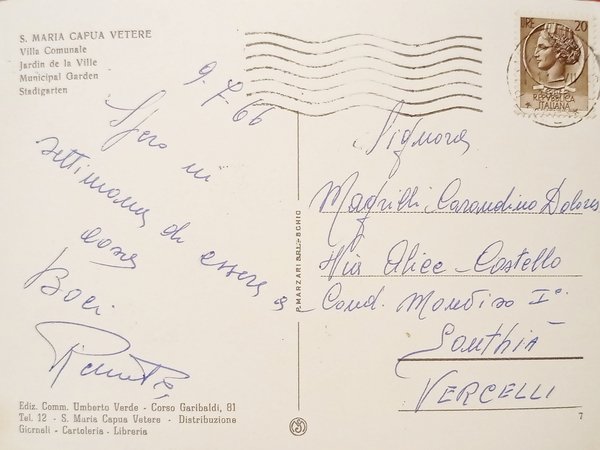 S. MARIA CAPUA VETERE
Villa Comunale
Jardin de la Ville
Municipal Garden
Stadtgarten
9-7-66
Spero in
settimana di essere a
casa
Baci
P. MARZARI S.R.L. - SCHIO
L. 20
REPUBBLICA
ITALIANA
Signora
Magrilli Carandino Dolores
Via Alice Castello
Cond. Mondiso I°
Santhià
VERCELLI
Ediz. Comm. Umberto Verde - Corso Garibaldi, 81
Tel. 12 - S. Maria Capua Vetere - Distribuzione
Giornali - Cartoleria - Libreria
7